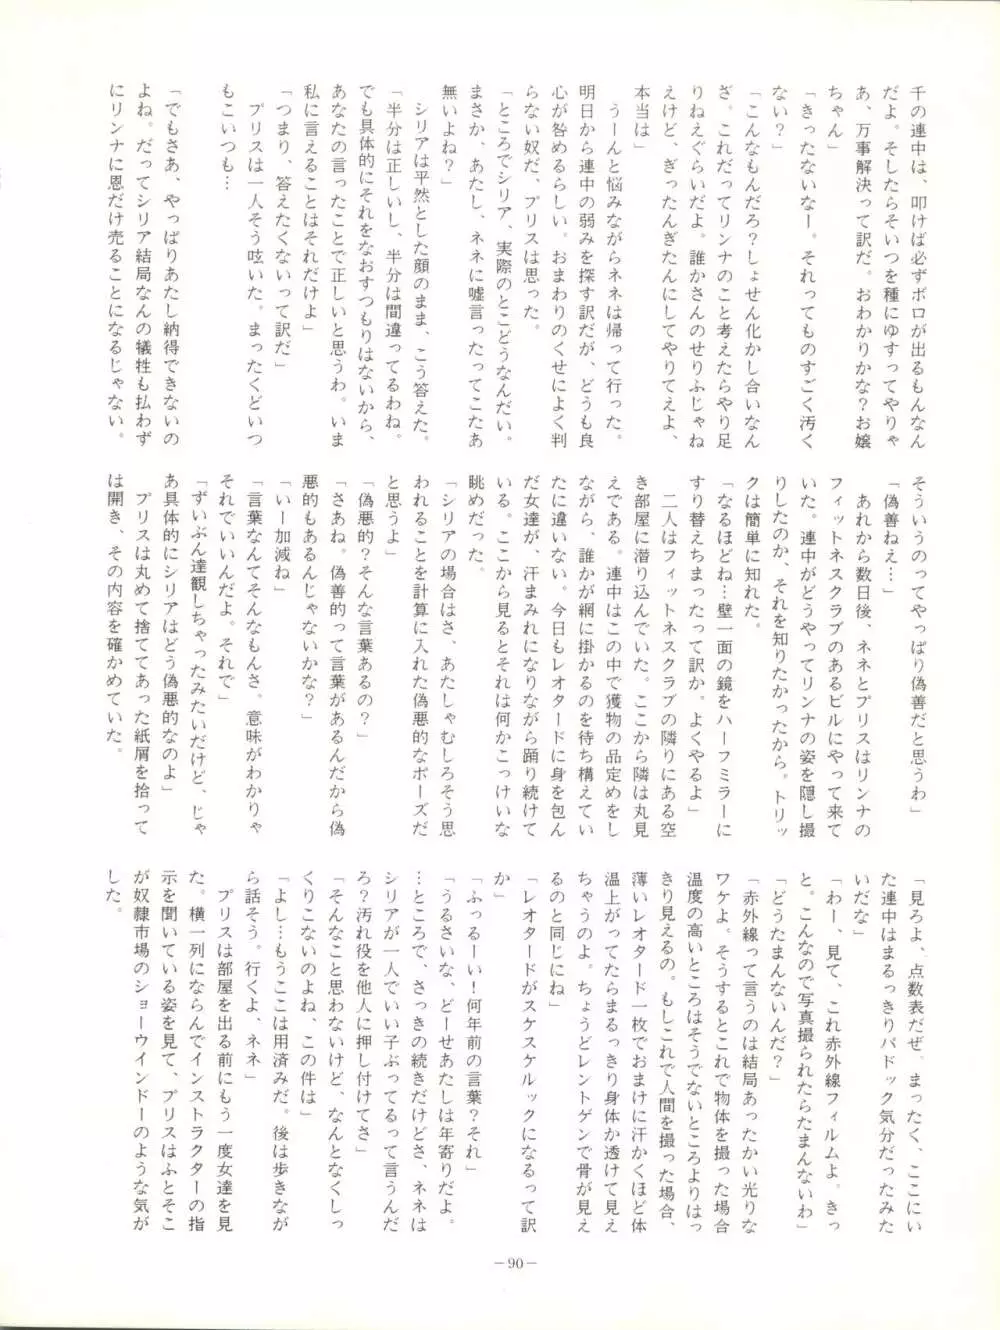 千の連中は、叩けば必ずボロが出るもんなん
だよ。そしたらそいつを種にゆすってやりゃ
あ、万事解決って訳だ。おわかりかな?お嬢
ちゃん」
「きったないなー。それってものすごく汚く
ない?」
「こんなもんだろ?しょせん化かし合いなん
ざ。これだってリンナのこと考えたらやり足
りねえぐらいだよ。誰かさんのせりふじゃね
えけど、ぎったんぎたんにしてやりてえよ、
本当は」
うーんと悩みながらネネは帰って行った。
明日から連中の弱みを探す訳だが、どうも良
心が咎めるらしい。おまわりのくせによく判
らない奴だ、プリスは思った。
「ところでシリア、実際のとこどうなんだい。
まさか、あたし、ネネに嘘言ったってこたあ
無いよね?」
シリアは平然とした顔のまま、こう答えた。
「半分は正しいし、半分は間違ってるわね。
でも具体的にそれをなおすつもりはないから、
あなたの言ったことで正しいと思うわ。いま
私に言えることはそれだけよ」
「つまり、答えたくないって訳だ」
プリスは一人そう呟いた。まったくどいつ
もこいつも…
「でもさあ、やっぱりあたし納得できないの
よね。だってシリア結局なんの犠牲も払わず
にリンナに恩だけ売ることになるじゃない。
そういうのってやっぱり偽善だと思うわ」
「偽善ねえ…」
あれから数日後、ネネとプリスはリンナの
フィットネスクラブのあるビルにやって来て
いた。連中がどうやってリンナの姿を隠し撮
りしたのか、それを知りたかったから。トリッ
クは簡単に知れた。
「なるほどね…壁一面の鏡をハーフミラーに
すり替えちまったって訳か。よくやるよ」
二人はフィットネスクラブの隣りにある空
き部屋に潜り込んでいた。ここから隣は丸見
えである。連中はこの中で獲物の品定めをし
ながら、誰かが網に掛かるのを待ち構えてい
たに違いない。今日もレオタードに身を包ん
だ女達が、汗まみれになりながら踊り続けて
いる。ここから見るとそれは何かこっけいな
眺めだった。
「シリアの場合はさ、あたしゃむしろそう思
われることを計算に入れた偽悪的なポーズだ
と思うよ」
「偽悪的?そんな言葉あるの?」
「さあね。偽善的って言葉があるんだから偽
悪的もあるんじゃないかな?」
「いー加減ね」
「言葉なんてそんなもんさ。意味がわかりゃ
それでいいんだよ。それで」
「ずいぶん達観しちゃったみたいだけど、じゃ
あ具体的にシリアはどう偽悪的なのよ」
プリスは丸めて捨ててあった紙屑を拾って
は開き、その内容を確かめていた。
「見ろよ、点数表だぜ。まったく、ここにい
た連中はまるっきりパドック気分だったみた
いだな」
「わー、見て、これ赤外線フィルムよ。きっ
と。こんなので写真撮られたらたまんないわ」
「どうたまんないんだ?」
「赤外線って言うのは結局あったかい光りな
ワケよ。そうするとこれで物体を撮った場合
温度の高いところはそうでないところよりはっ
きり見えるの。もしこれで人間を撮った場合、
薄いレオタード一枚でおまけに汗かくほど体
温上がってたらまるっきり身体か透けて見え
ちゃうのよ。ちょうどレントゲンで骨が見え
るのと同じにね」
「レオタードがスケスケルックになるって訳
か」
「ふっるーい!何年前の言葉?それ」
「うるさいな、どーせあたしは年寄りだよ。
…ところで、さっきの続きだけどさ、ネネは
シリアが一人でいい子ぶってるって言うんだ
ろ?汚れ役を他人に押し付けてさ」
「そんなこと思わないけど、なんとなくしっ
くりこないのよね、この件は」
「よし…もうここは用済みだ。後は歩きなが
ら話そう。行くよ、ネネ」
プリスは部屋を出る前にもう一度女達を見
た。横一列にならんでインストラクターの指
示を聞いている姿を見て、プリスはふとそこ
が奴隷市場のショーウインドーのような気が
した。
−90−